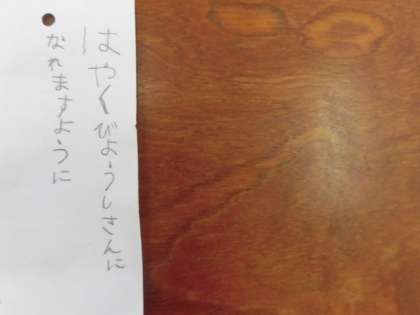 はやくびようしさんに
なれますように